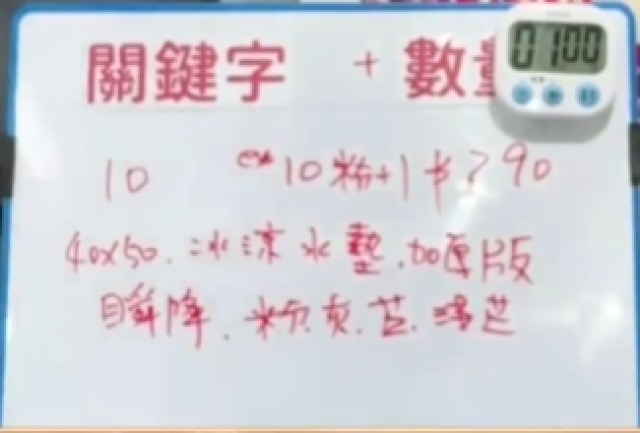 關鍵字 + 數量
0100
10 ex 10粉+1 $790
40x50.冰涼水墊.加厚版
瞬降.粉.灰.藍.